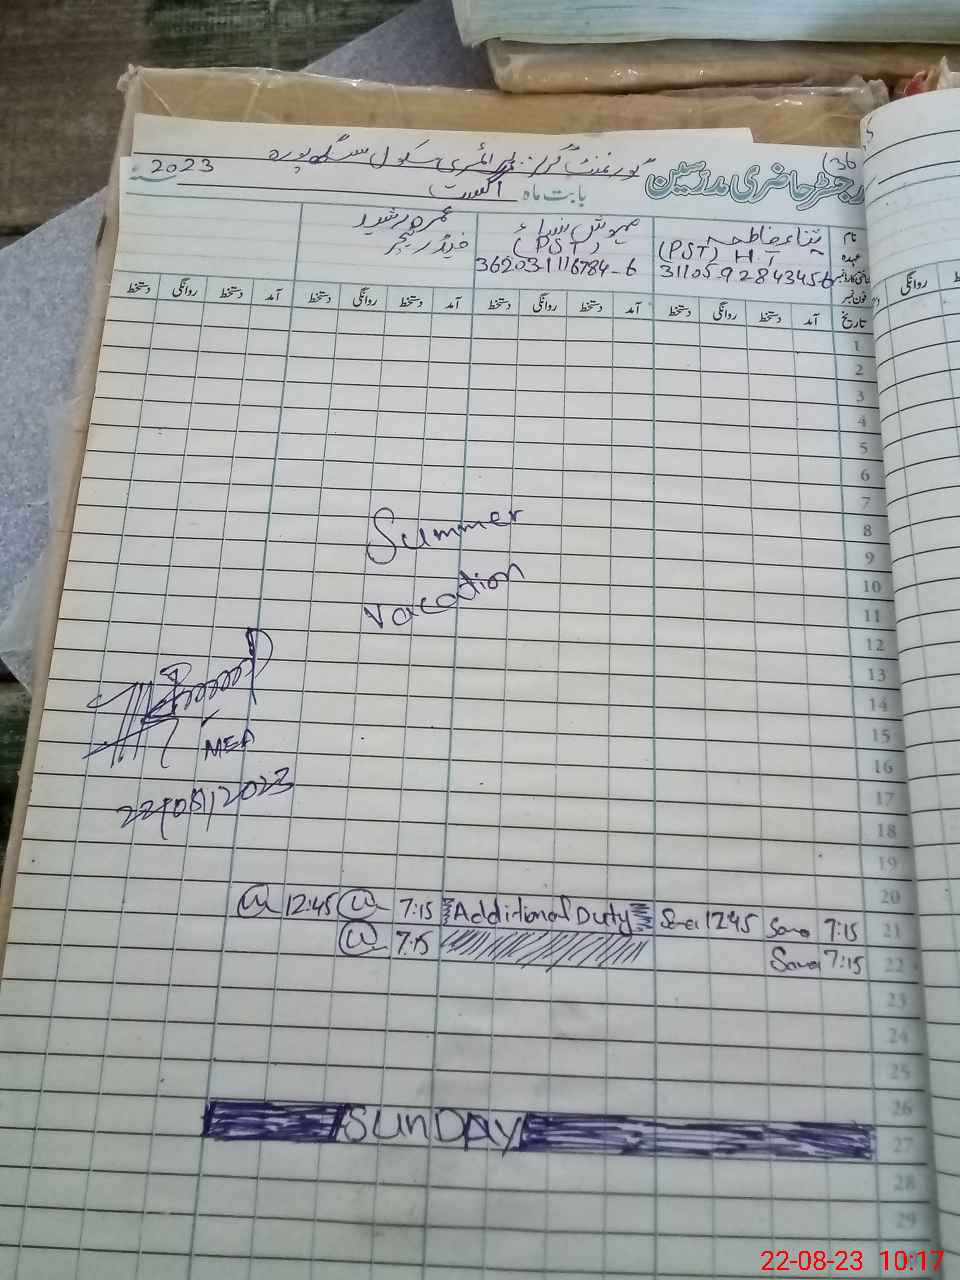 36
رجسٹر حاضری مدرسین گورنمنٹ گرلز پرائمری سکول سنگھ پورہ
بابت ماہ اگست 2023
نام ثناء فاطمہ مہوش نساء عمرہ رشید
عہدہ (PST) H.T (PST) فیڈر ٹیچر
شناختی کارڈ نمبر 31105928434546 36203-1116784-6
فون نمبر
تاریخ آمد دستخط روانگی دستخط آمد دستخط روانگی دستخط آمد دستخط روانگی دستخط آمد دستخط روانگی دستخط
روانگی
1
2
3
4
5
6
7
Summer
8
9
vacation
10
11
12
13
14
15
MEA
16
22/08/2023
17
18
19
20
12:45 7:15 Additional Duty Sana 1245 Sana 7:15 21
7:15 Sana 7:15 22
23
24
25
26
SUNDAY 27
28
29
22-08-23 10:17